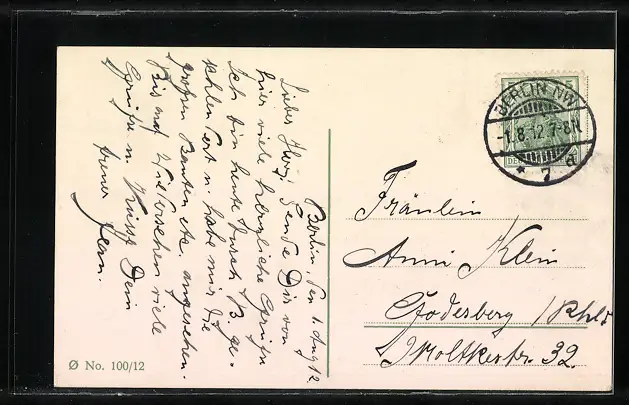 Berlin, den 1. Aug. 12.
Liebes Herz! Sende Dir von
hier viele herzliche Grüße
Ich bin heute durch B. ge-
u. habe mir die
großen Bauten etc. angesehen.
Bis auf Wiedersehen viele
Grüße u. Küsse Dein
treuer
BERLIN NW
-1.8.12.7-8N
* 7 d
Fräulein
Anni Klein
Godesberg /Rhld
Moltkestr. 32.
Ø No. 100/12